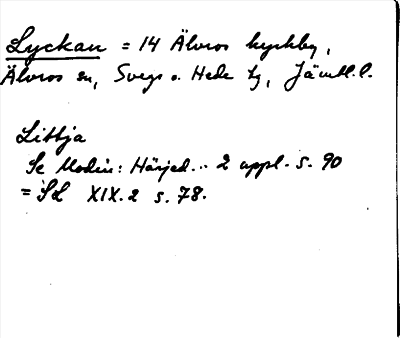 Lyckan = 14 Älvros kyrkby,
Älvros sn, Svegs o. Hede tg, Jämtl.l.
Littja
Se Modin: Härjed... 2 uppl. s. 90
= SvL XIX.2 s. 78.